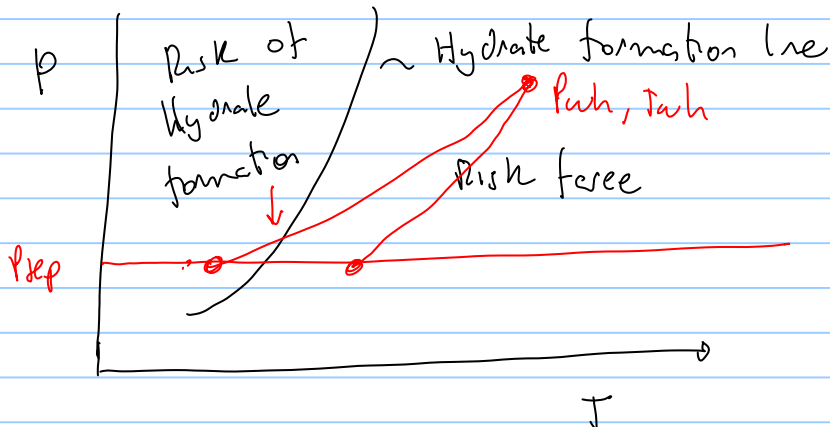 P
Risk of
Hydrate
formation
~ Hydrate formation line
Pwh, Twh
Risk feree
Psep
T